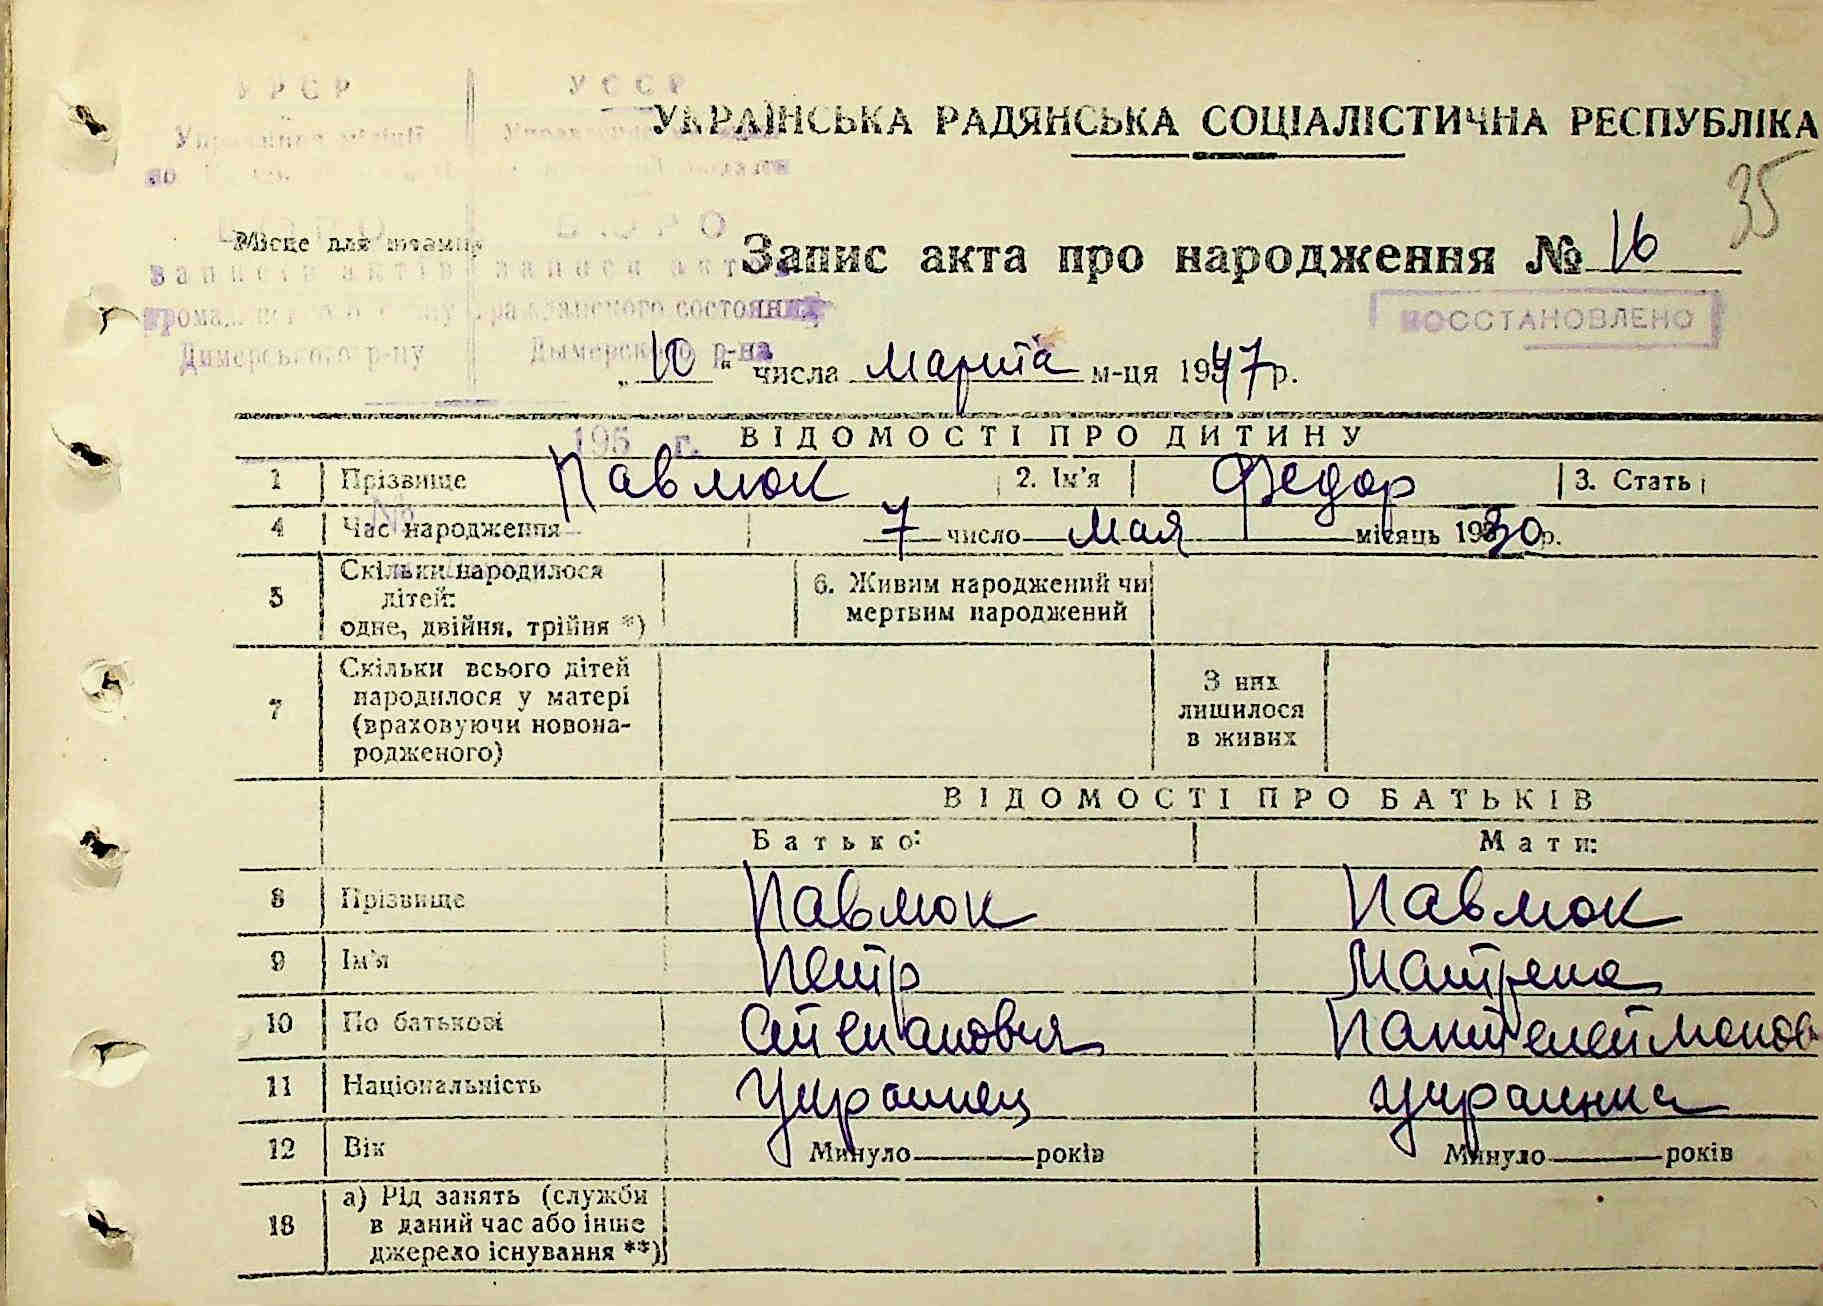 У Р С Р У С С Р
УКРАЇНСЬКА РАДЯНСЬКА СОЦІАЛІСТИЧНА РЕСПУБЛІКА
35
Місце для штампу
Запис акта про народження № 16
записів актів записи актов
гражданского состояния
ВОССТАНОВЛЕНО
Димерського р-ну Дымерского р-на
„10“ числа марта м-ця 1947 р.
195 г.
ВІДОМОСТІ ПРО ДИТИНУ
1 Прізвище Павлюк 2. Ім'я Федор 3. Стать
№
4 Час народження 7 число мая місяць 1930 р.
5 Скільки народилося
дітей:
одне, двійня, трійня *)
6. Живим народжений чи
мертвим народжений
7 Скільки всього дітей
народилося у матері
(враховуючи новона-
родженого)
З них
лишилося
в живих
ВІДОМОСТІ ПРО БАТЬКІВ
Батько: Мати:
8 Прізвище Павлюк Павлюк
9 Ім'я Петр Матрена
10 По батькові Степанович Пантелеймонов
11 Національність Украинец украинка
12 Вік Минуло років Минуло років
13 а) Рід занять (служби
в даний час або інше
джерело існування **)